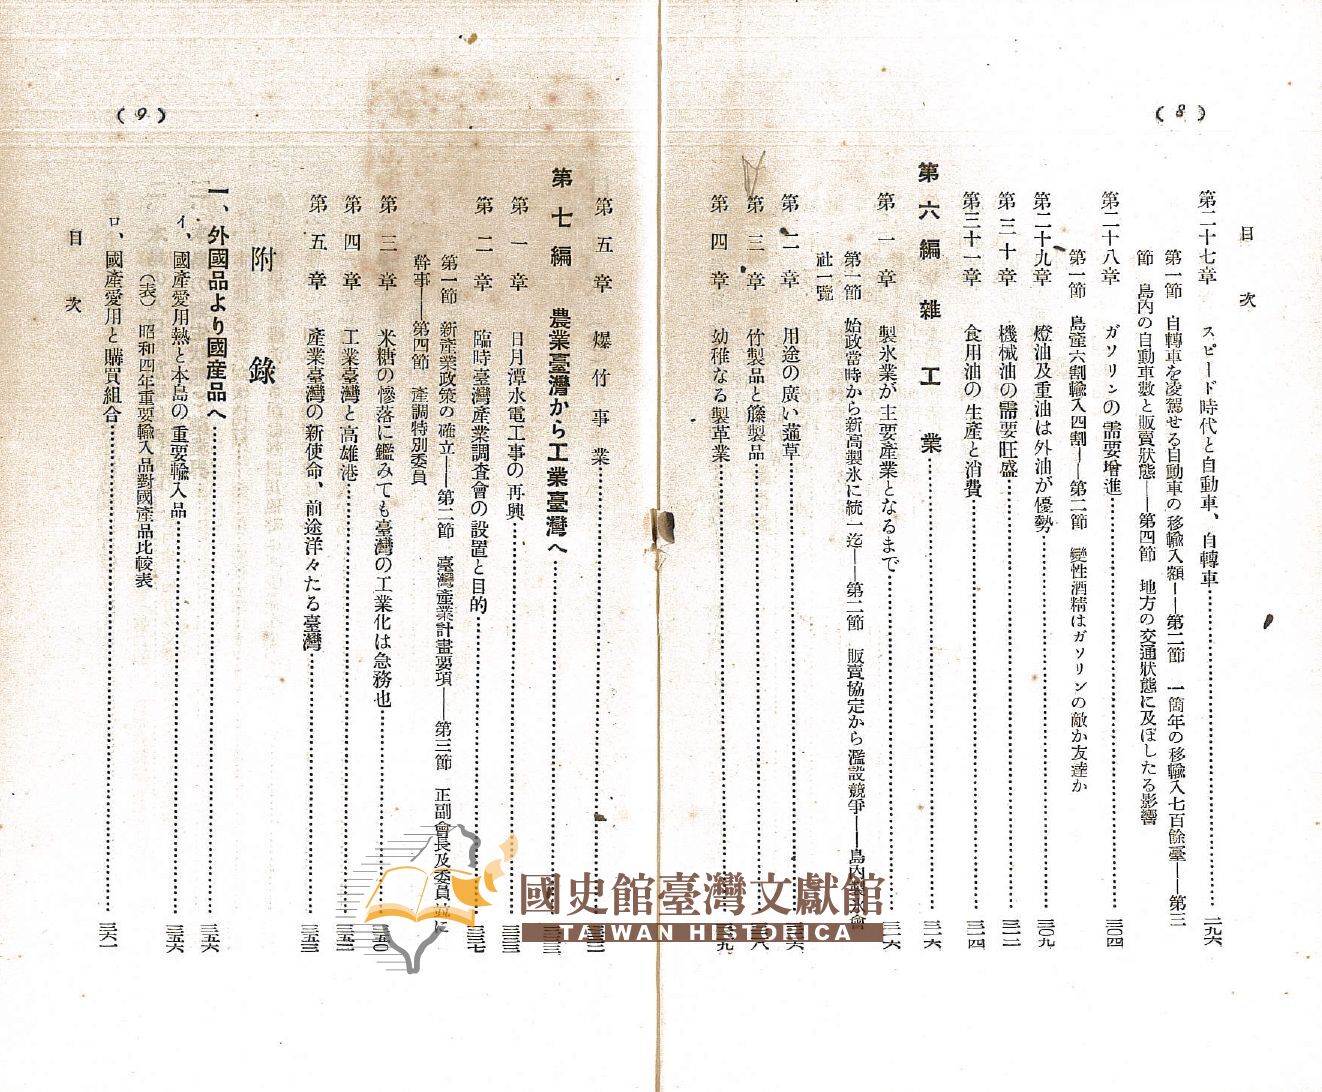 (8)
目次
第二十七章 スピード時代と自動車、自轉車…………二九六
第一節 自轉車を凌駕せる自動車の移輸入額——第二節 一箇年の移輸入七百餘臺——第三
節 島內の自動車數と販賣狀態——第四節 地方の交通狀態に及ぼしたる影響
第二十八章 ガソリンの需要增進…………三〇四
第一節 島產六割輸入四割——第二節 變性酒精はガソリンの敵か友達か
第二十九章 燈油及重油は外油が優勢…………三〇九
第三十章 機械油の需要旺盛…………三一二
第三十一章 食用油の生產と消費…………三一四
第六編 雜工業…………三一六
第一章 製氷業が主要產業となるまで…………三一六
第一節 始政當時から新高製氷に統一迄——第二節 販賣協定から濫設競爭——島內製氷會
社一覽
第二章 用途の廣い蓪草…………
第三章 竹製品と籐製品…………
第四章 幼稚なる製革業…………
(9)
第五章 爆竹事業…………
第七編 農業臺灣から工業臺灣へ…………
第一章 日月潭水電工事の再興…………三三三
第二章 臨時臺灣產業調查會の設置と目的…………三三七
第一節 新產業政策の確立——第二節 臺灣產業計畫要項——第三節 正副會長及委員並に
幹事——第四節 產調特別委員
第三章 米糖の慘落に鑑みても臺灣の工業化は急務也…………三五〇
第四章 工業臺灣と高雄港…………三五二
第五章 產業臺灣の新使命、前途洋々たる臺灣…………三五三
附錄
一、外國品より國產品へ…………三五六
イ、國產愛用熱と本島の重要輸入品…………三五六
(表) 昭和四年重要輸入品對國產品比較表
ロ、國產愛用と購買組合…………三六一
目次
國史館臺灣文獻館
TAIWAN HISTORICA